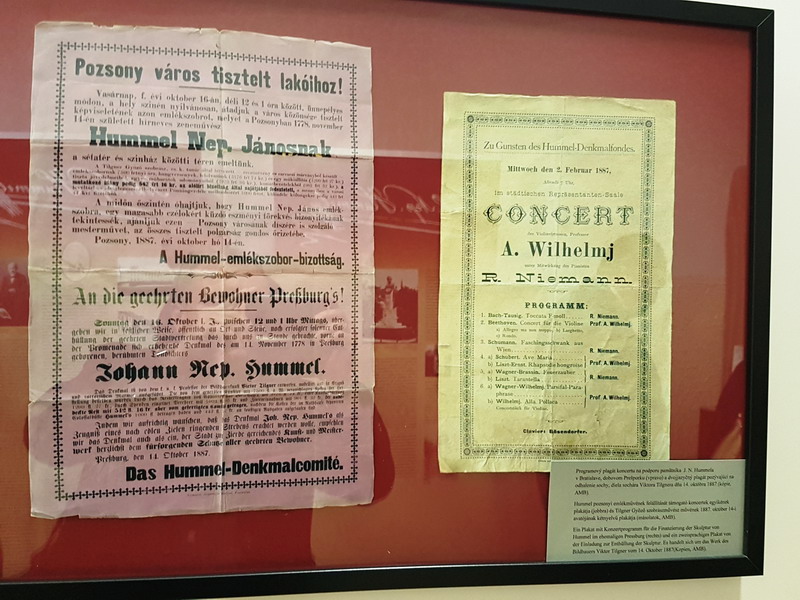 Pozsony város tisztelt lakóihoz!
Vasárnap, f. évi október 16-án, déli 12 és 1 óra között, ünnepélyes
módon, a hely szinén nyilvánosan, átadjuk a város közönsége tisztelt
képviseletének azon emlékszobrot, melyet a Pozsonyban 1778. november
14-én született hirneves zeneművész
Hummel Nep. Jánosnak
a sétatér és szinház közötti téren emeltünk.
A midőn őszintén óhajtjuk, hogy Hummel Nep. János emlék-
szobra, egy magasabb czélokért küzdő eszményi törekvés bizonyitékának
tekintessék, ajánljuk ezen Pozsony városának diszére is szolgáló
mesterművet, az összes tisztelt polgárság gondos őrizetébe.
Pozsony, 1887. évi október hó 14-én.
A Hummel-emlékszobor-bizottság.
An die geehrten Bewohner Preßburg's!
Sonntag den 16. Oktober l. J., zwischen 12 und 1 Uhr Mittags, über-
geben wir in festlicher Weise, öffentlich an Ort und Stelle,
der Promenade
geborenen, berühmten Tondichters
Johann Nep. Hummel.
Indem wir aufrichtig wünschen, daß das Denkmal Joh. Nep. Hummel's als
Zeugniß eines nach edlen Zielen ringenden Strebens erachtet werden wolle, empfehlen
wir das Denkmal auch als ein, der Stadt zur Zierde gereichendes Kunst- und Meister-
werk herzlichst dem fürsorgenden Schutze aller geehrten Bewohner.
Preßburg, den 14. Oktober 1887.
Das Hummel-Denkmalcomité.
Zu Gunsten des Hummel-Denkmalfondes.
Mittwoch den 2. Februar 1887,
Abends 7 Uhr,
im städtischen Repräsentanten-Saale
CONCERT
des Violinvirtuosen, Professor
A. Wilhelmj
unter Mitwirkung des Pianisten
R. Niemann.
PROGRAMM:
1. Bach-Tausig. Toccata F moll. R. Niemann.
2. Beethoven. Concert für die Violine Prof. A. Wilhelmj.
a) Allegro ma non troppo, b) Larghetto,
c) Rondo.
3. Schumann. Faschingsschwank aus
Wien. R. Niemann.
4. a) Schubert. Ave Maria
b) Liszt-Ernst. Rhapsodie hongroise Prof. A. Wilhelmj.
5. a) Wagner-Brassin. Feuerzauber
b) Liszt. Tarantella R. Niemann.
6. a) Wagner-Wilhelmj. Parsifal-Para-
phrase
b) Wilhelmj. Alla Pollaca Prof. A. Wilhelmj.
Concertstück für Violine.
Clavier: Bösendorfer.
Programový plagát koncertu na podporu pamätníka J. N. Hummela
v Bratislave, dobovom Prešporku (vpravo) a dvojjazyčný plagát pozývajúci na
odhalenie sochy, diela sochára Viktora Tilgnera dňa 14. októbra 1887 (kópie,
AMB).
Hummel pozsonyi emlékművének felállítását támogató koncertek egyikének
plakátja (jobbra) és Tilgner Győző szobrászművész művének 1887. október 14-i
avatójának kétnyelvű plakátja (másolatok, AMB).
Ein Plakat mit Konzertprogramm für die Finanzierung der Skulptur von
Hummel im ehemaligen Pressburg (rechts) und ein zweisprachiges Plakat von
der Einladung zur Enthüllung der Skulptur. Es handelt sich um das Werk des
Bildhauers Viktor Tilgner vom 14. Oktober 1887(Kopien, AMB).